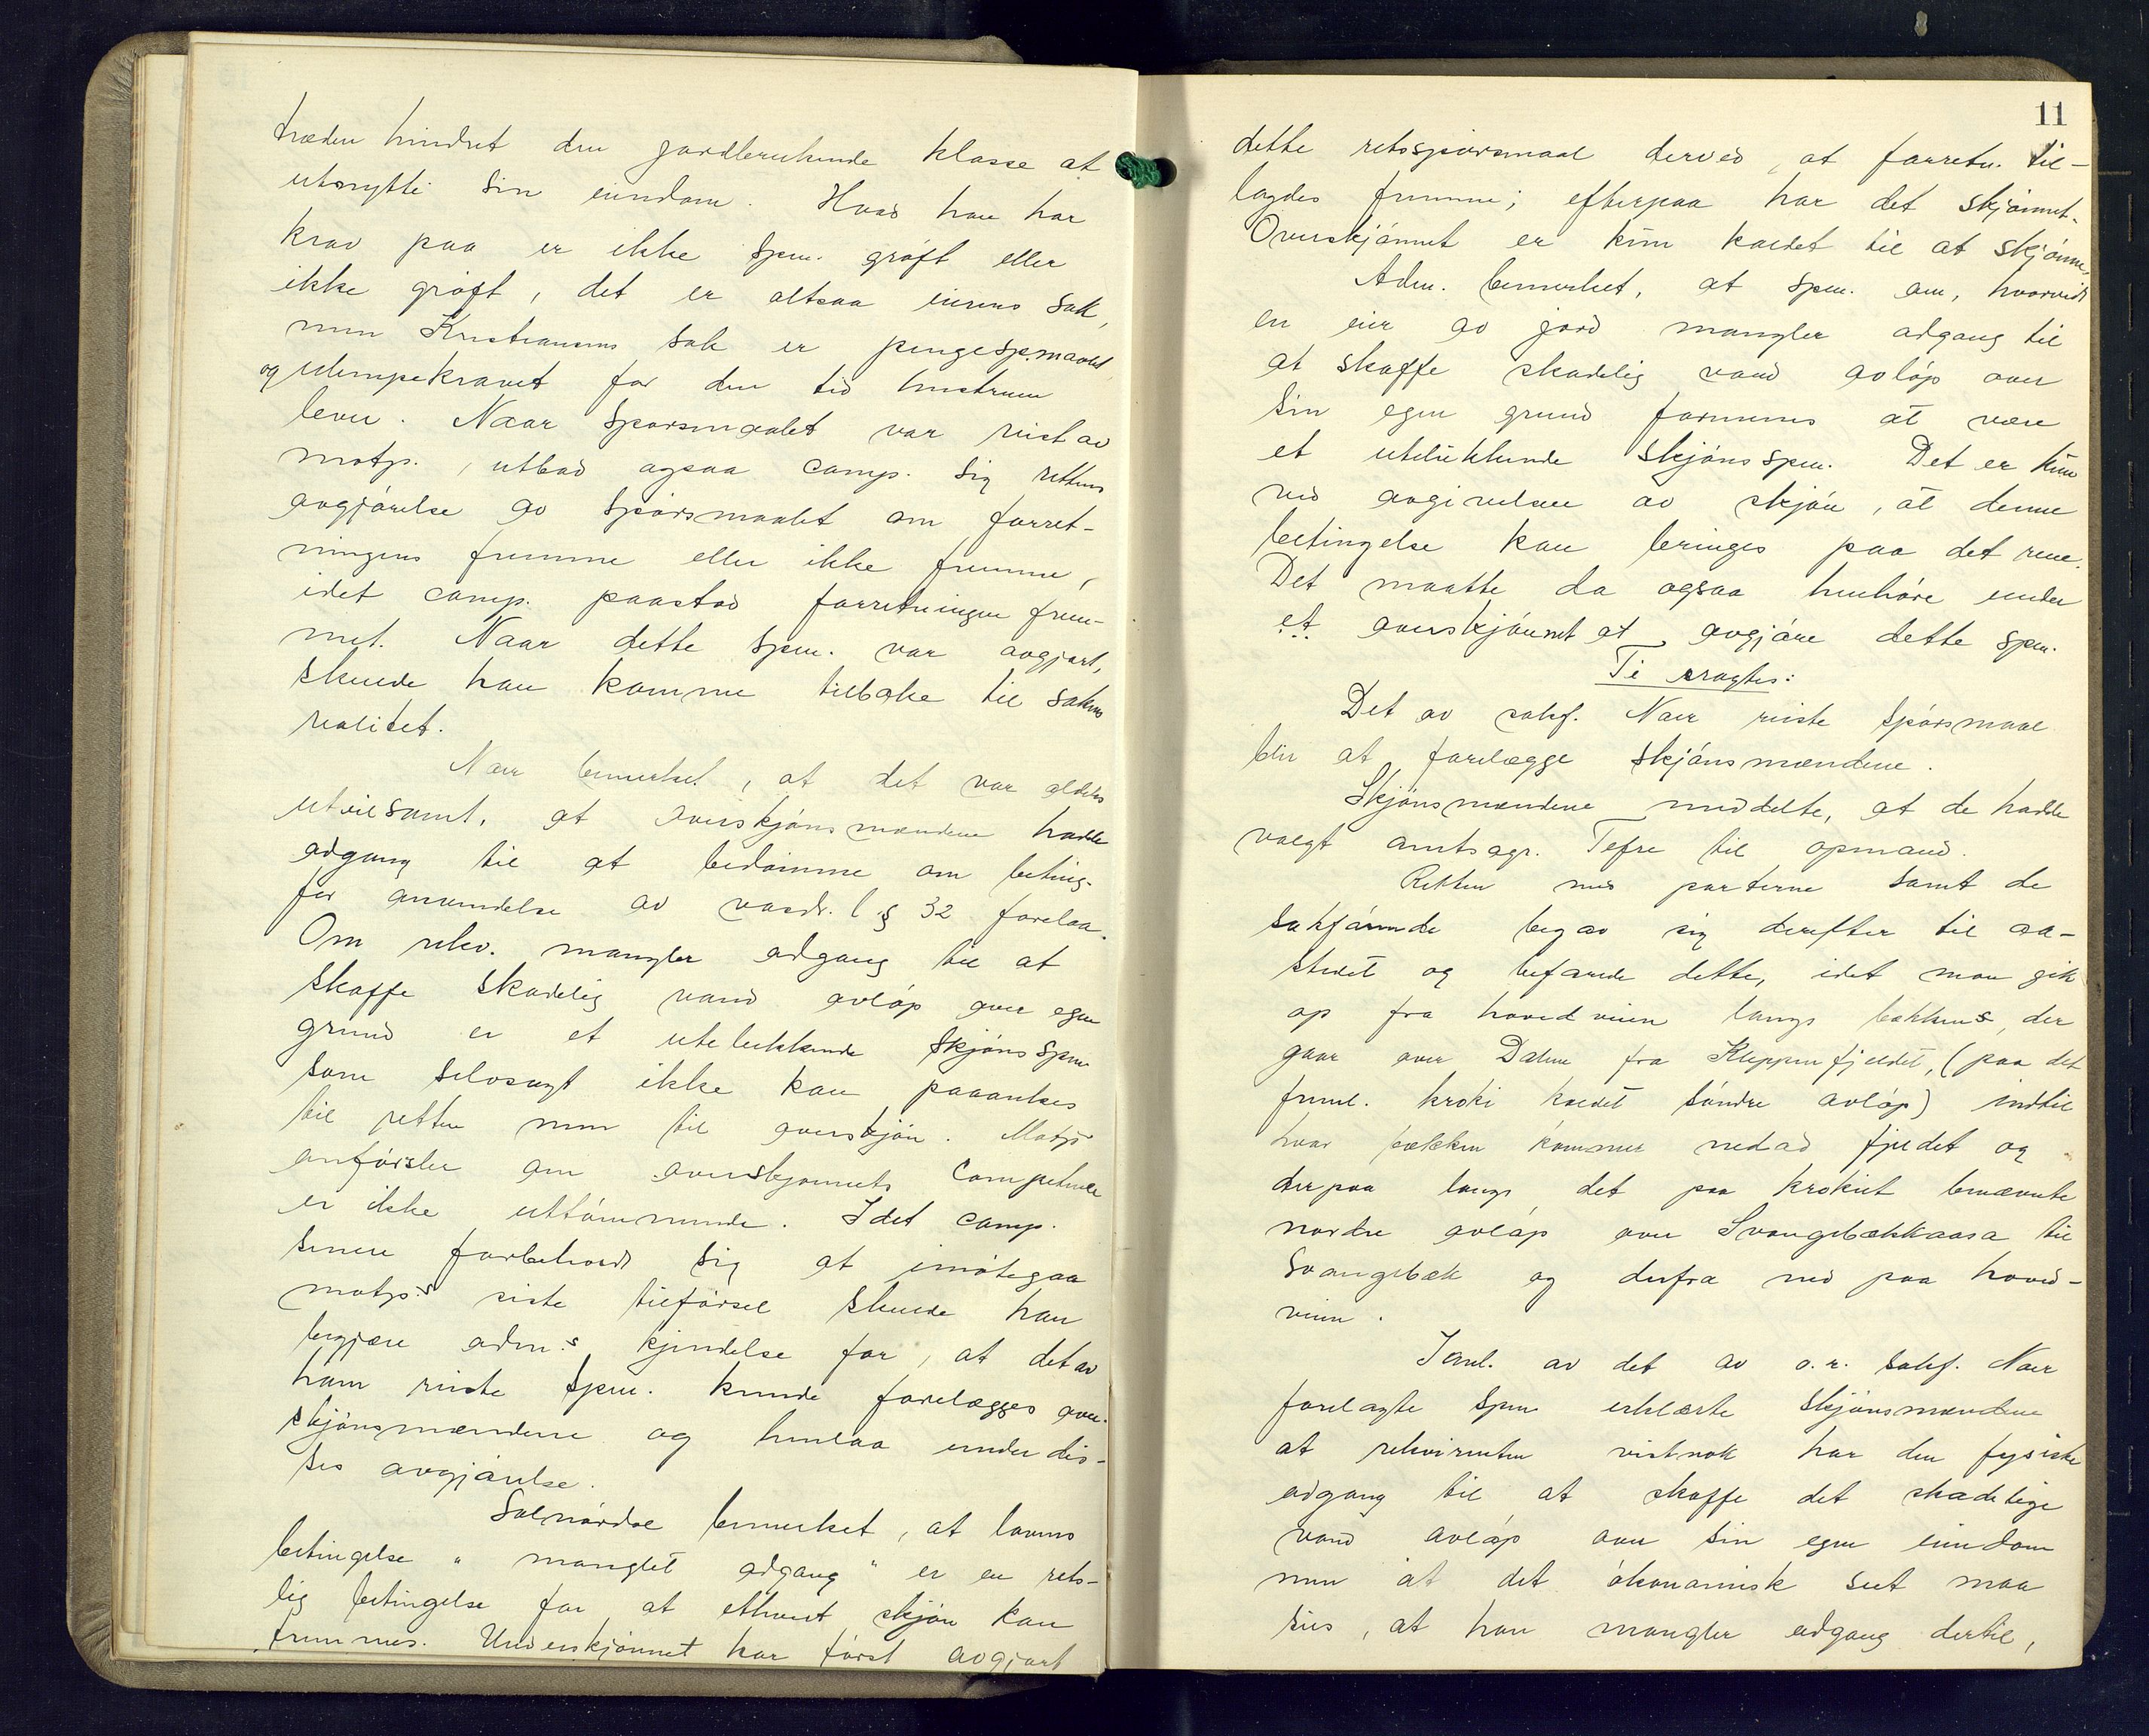 træden hindret den jordbrukende klasse at
utnytte sin eiendom. Hvad han har
krav paa er ikke spm. grøft eller
ikke grøft, det er altsaa eierens sak,
men Kristiansens sak er pengespmaalet
og ulempekravet for den tid hustruen
lever. Naar spørsmaalet var reist av
motp., utbad ogsaa comp. sig rettens
avgjørelse av spørsmaalet om forret-
ningens fremme eller ikke fremme,
idet comp. paastod forretningen frem-
met. Naar dette spm. var avgjort,
skulde han komme tilbake til sakens
realitet.
Nær bemerket, at det var aldeles
utvilsomt, at overskjønsmændene hadde
adgang til at bedømme om beting.
for anvendelse av vasdr. l § 32 forelaa.
Om rekv. mangler adgang til at
skaffe skadelig vand avløp over egen
grund er et utelukkende skjønsspm
som selvsagt ikke kan paaankes
til retten men til overskjøn. Motps
anførsler om overskjønnets competence
er ikke uttømmende. Idet comp.
senere forbeholdt sig at imøtegaa
motp.s siste tilførsel skulde han
begjære adm.s kjendelse for, at det av
ham reiste spm. kunde forelægges over-
skjønsmændene og henlaa under dis-
ses avgjørelse.
Solnørdal bemerket, at lovens
betingelse "manglet adgang" er en rets-
lig betingelse for at ethvert skjøn kan
fremmes. Underskjønnet har først avgjort
11
dette retsspørsmaal derved, at forretn. til-
lagdes fremme; efterpaa har det skjønnet.
Overskjønnet er kun kaldet til at skjønne.
Adm. bemerket, at spm. om, hvorvidt
en eier av jord mangler adgang til
at skaffe skadelig vand avløp over
sin egen grund formenes at være
et utelukkende skjønsspm. Det er kun
ved avgivelsen av skjøn, at denne
betingelse kan bringes paa det rene.
Det maatte da ogsaa henhøre under
et overskjønnet at avgjøre dette spm.
Ti eragtes:
Det av sakf. Nær reiste spørsmaal
blir at forelægge skjønsmændene.
Skjønsmændene meddelte, at de hadde
valgt amtsagr. Tefre til opmand.
Retten med parterne samt de
sakførende begav sig derefter til aa-
stedet og befarede dette, idet man gik
op fra hovedveien langs bækkens, der
gaar over Dalen fra Kleppenfjeldet, (paa det
freml. kroki kaldet søndre avløp) indtil
hvor bækken kommer nedad fjeldet og
derpaa langs det paa krokiet benævnte
nordre avløp over Svangebækkaasa til
Svangebæk og derfra ned paa hoved-
veien.
I anl. av det av o.r. sakf. Nær
forelagte spm erklærte skjønsmændene
at rekvirenten vistnok har den fysiske
adgang til at skaffe det skadelige
vand avløp over sin egen eiendom
men at det økonomisk set maa
sies, at han mangler adgang dertil,